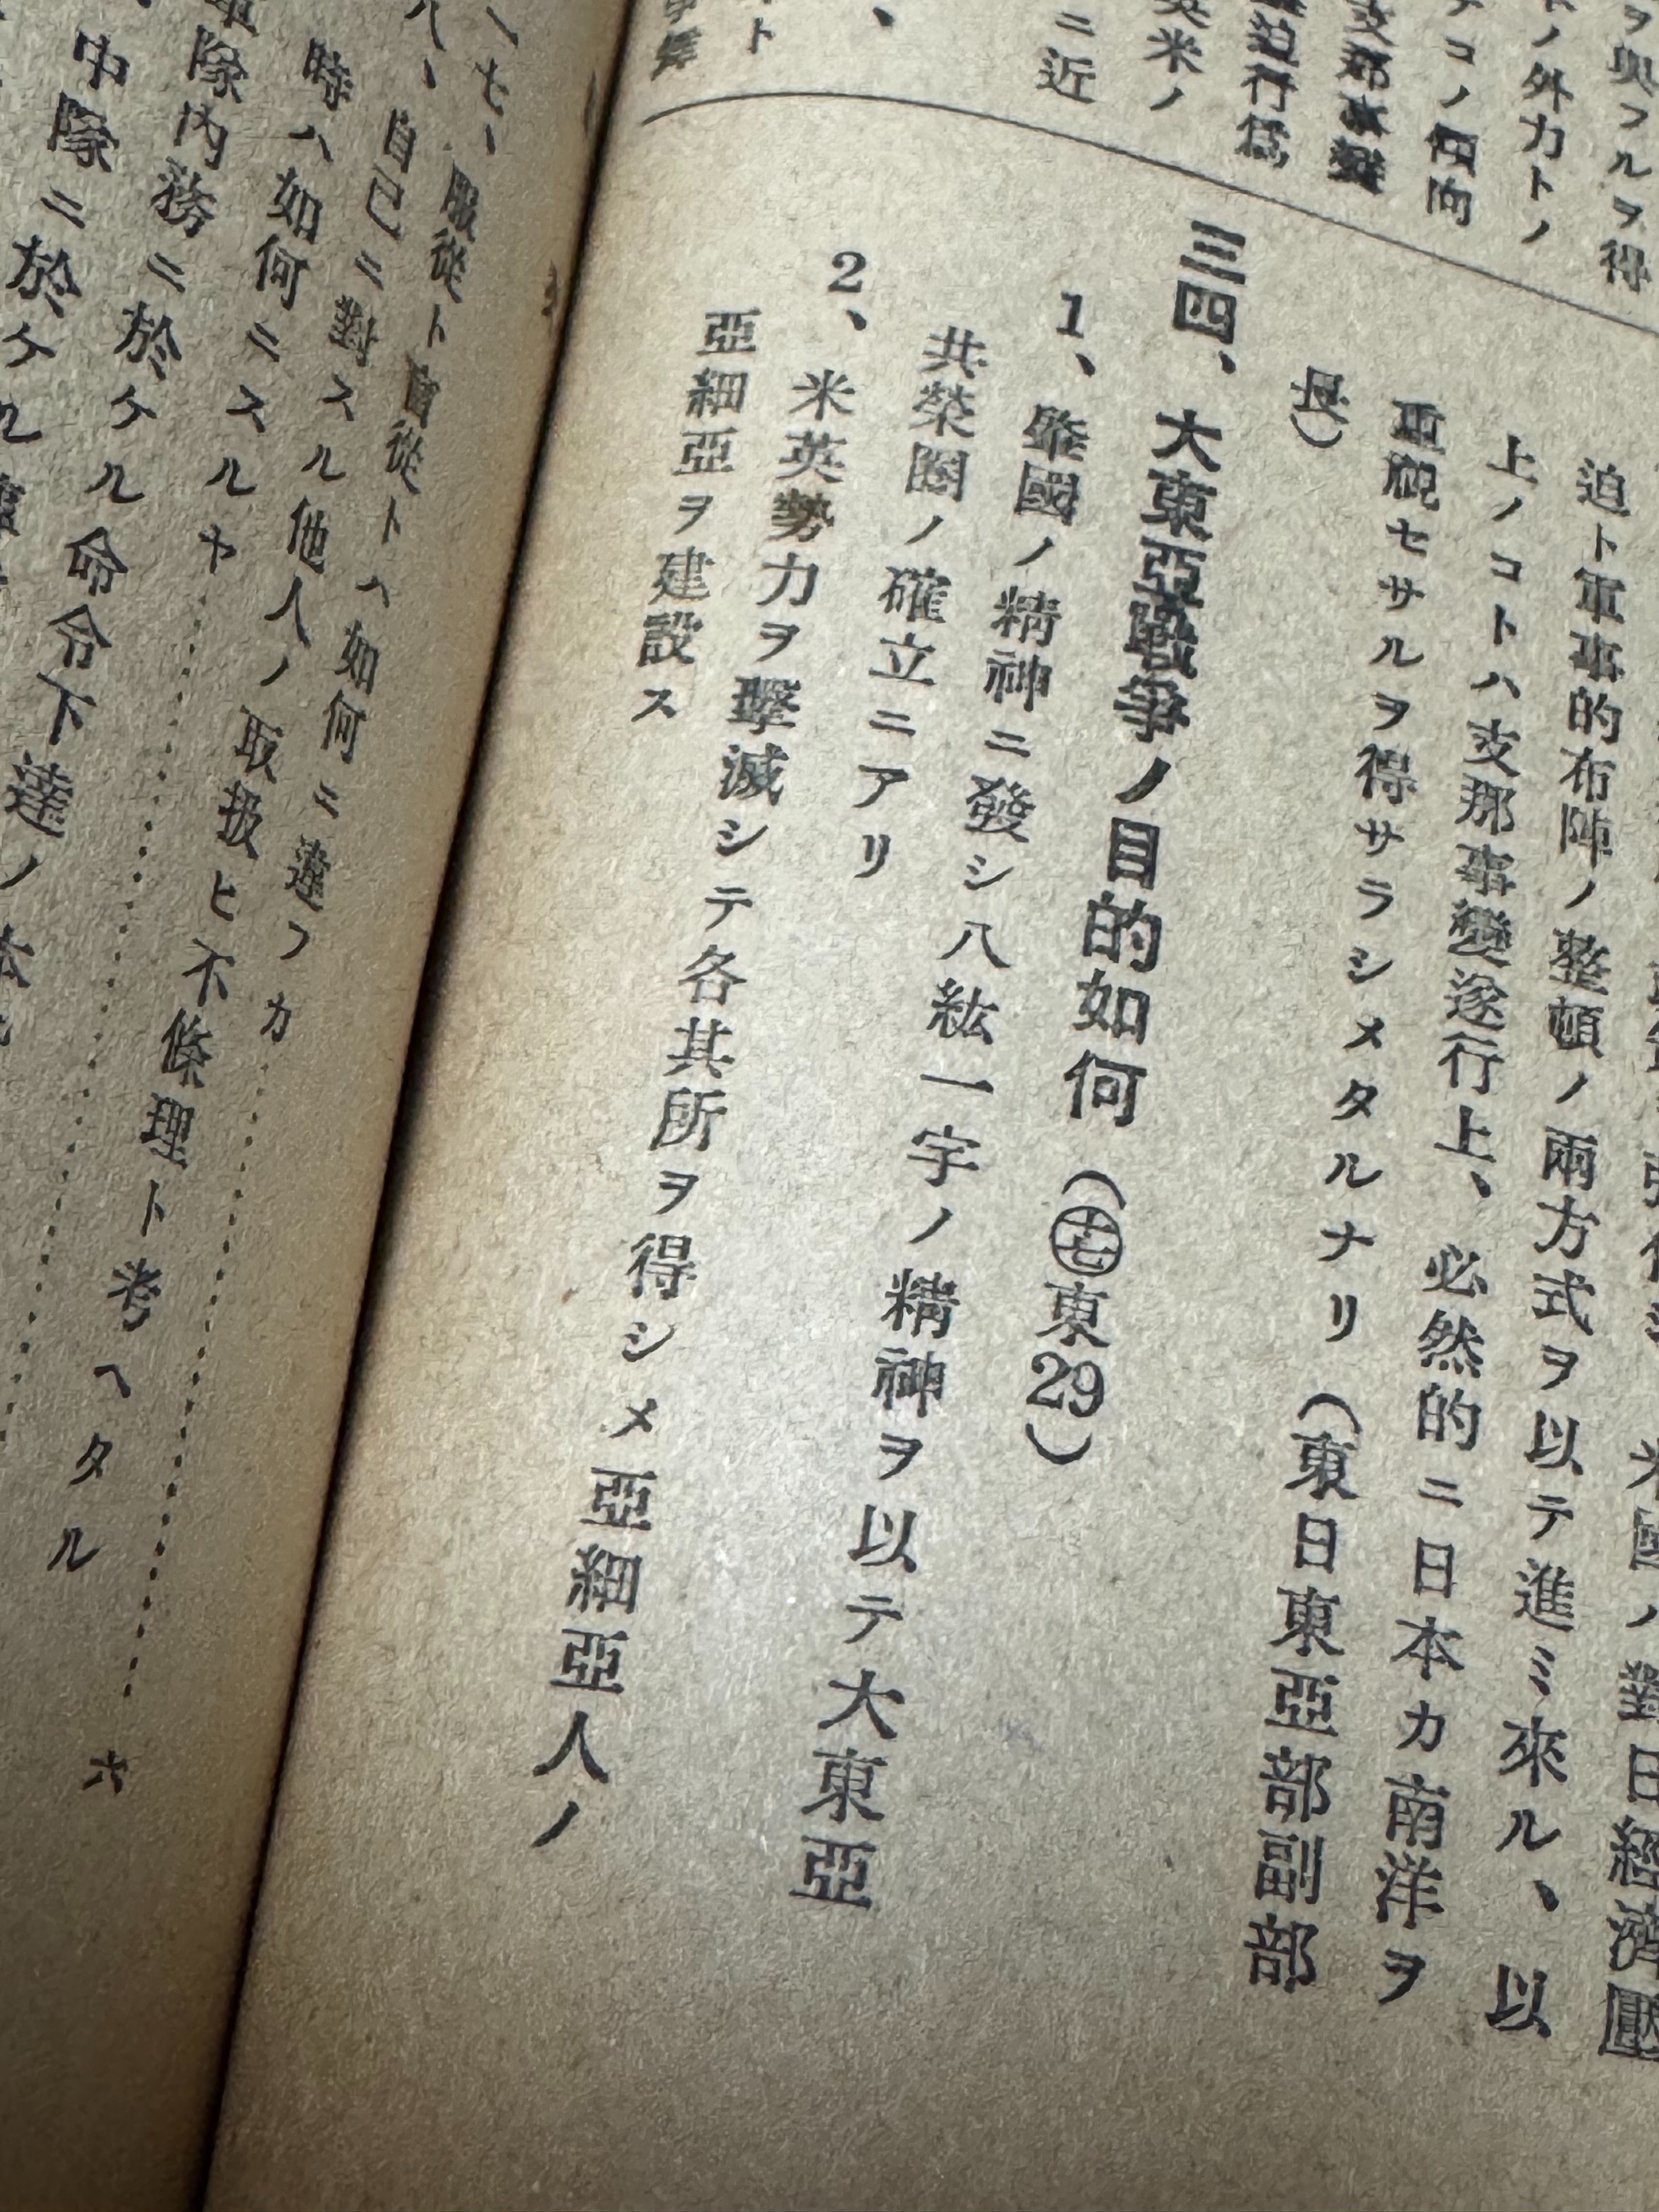 ヲ與フルヲ得
ノ外力トノ
コノ傾向
支那事變
迫行爲
英米ノ
ニ近
ト
米國ノ對日經濟壓
迫ト軍事的布陣ノ整頓ノ兩方式ヲ以テ進ミ來ル、以
上ノコトハ支那事變遂行上、必然的ニ日本カ南洋ヲ
重視セサルヲ得サラシメタルナリ(東日東亞部副部
長)
三四、大東亞戰爭ノ目的如何(㊆東29)
1、肇國ノ精神ニ發シ八紘一宇ノ精神ヲ以テ大東亞
共榮圈ノ確立ニアリ
2、米英勢力ヲ擊滅シテ各其所ヲ得シメ亞細亞人ノ
亞細亞ヲ建設ス
一七、服從ト盲從トハ如何ニ違フカ
八、自己ニ對スル他人ノ取扱ヒ不條理ト考ヘタル
時ハ如何ニスルヤ………六
軍隊內務ニ於ケル命令下達ノ本
中隊ニ於ケル